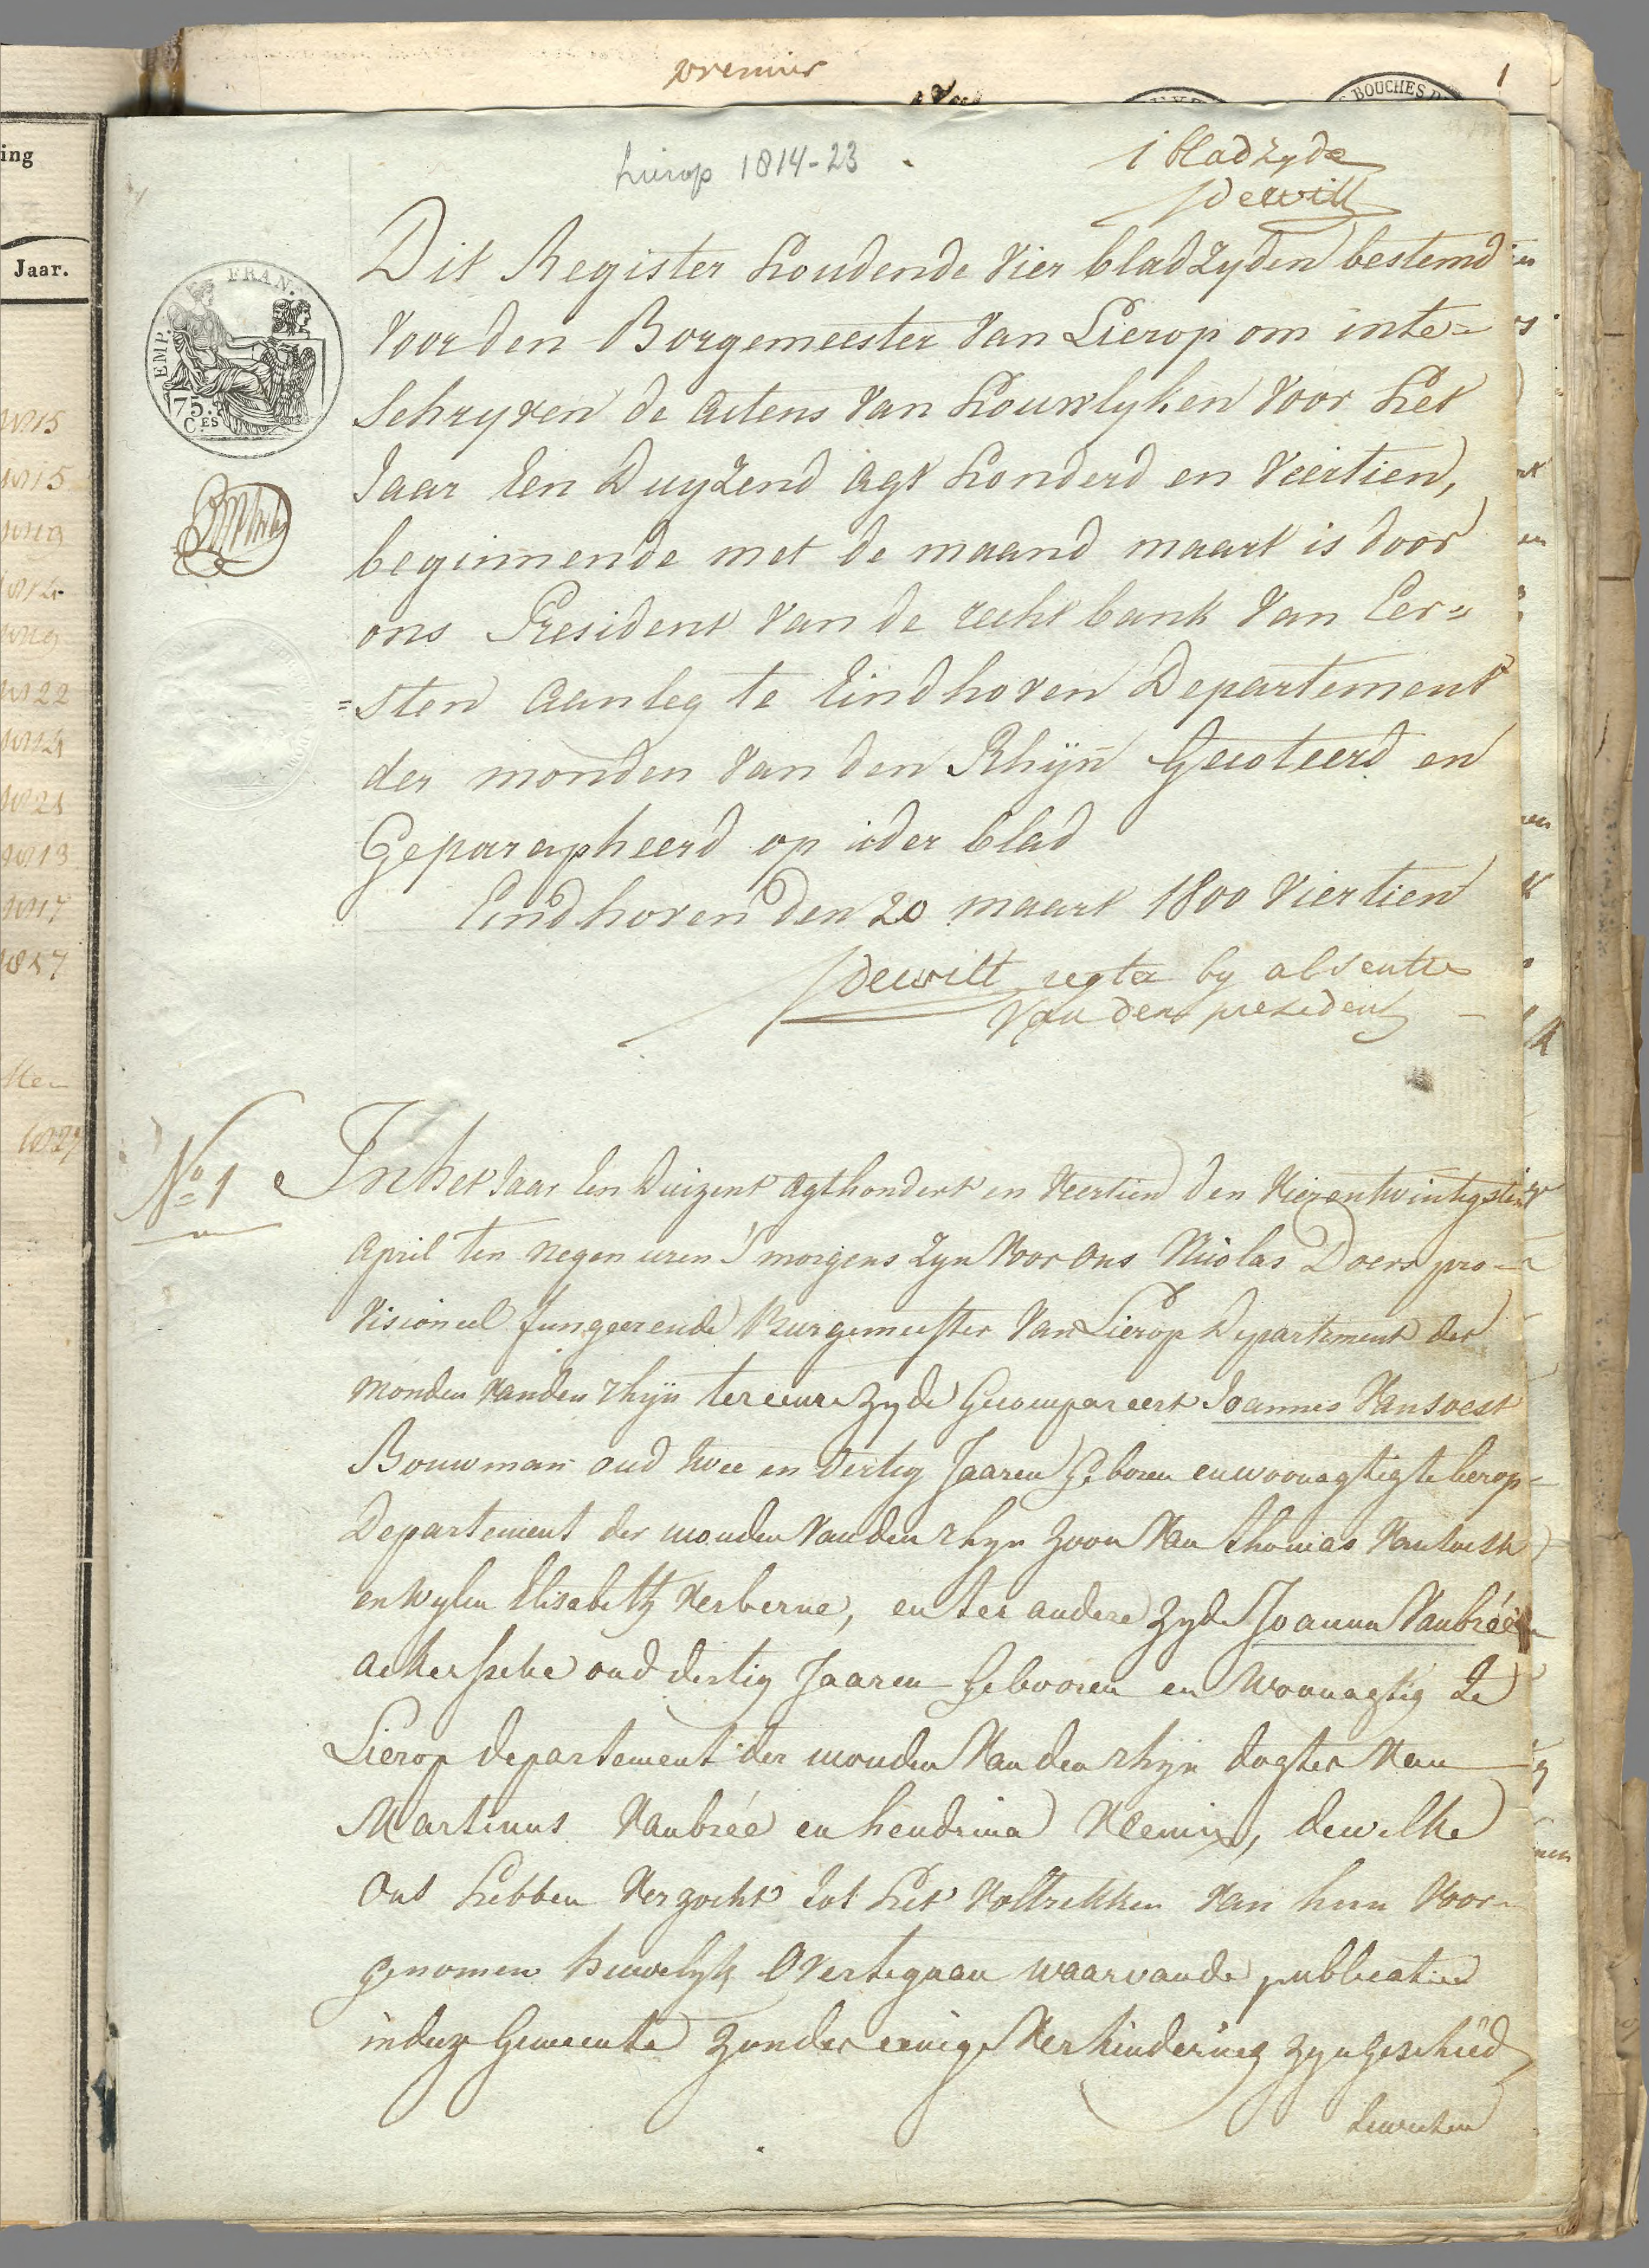 premier
1
BOUCHES D
ing
Jaar.
Lierop 1814-23
1 bladzyde
Dewitt
EMP. FRAN.
75.
C.ES
Dit Register houdende vier bladzyden bestemd
voor den Borgemeester van Lierop om inte=
schryven de actens van houwlyken voor het
Jaar een duyzend agt honderd en veertien,
beginnende met de maand maart is door
ons President van de recht bank van Eer=
=sten aanleg te Eindhoven Departement
der monden van den Rhijn Gecoteerd en
Geparapheerd op ider blad
Eindhoven den 20 maart 1800 viertien
Dewitt regter by absentie
van den president
N° 1
In het Jaar Een Duizent agthondert en veertien den vierentwintigsten
april ten negen uren s'morgens zyn voor ons Nicolas Doers pro-
visioneel fungeerende Burgemeester van Lierop Departement der
monden van den rhijn ter eenre zyde Gecompareert Joannes Vansoest
Bouwman oud twee en dertig Jaaren geboren en woonagtig te lierop
Departement der monden van den rhyn zoon van thomas Vansoest
en wylen Elisabeth Verberne, en ter andere zyde Joanna Vanbrée
ackersche oud dertig Jaaren gebooren en woonagtig te
Lierop departement der monden van den rhijn dogter van
Martinus Vanbrée en hendrina, dewelke
ons hebben verzocht tot het voltrekken van hun voor-
genomen huwelyk overtegaan waarvan de publicatien
in deze Gemeente zonder eenige verhindering zyn geschied